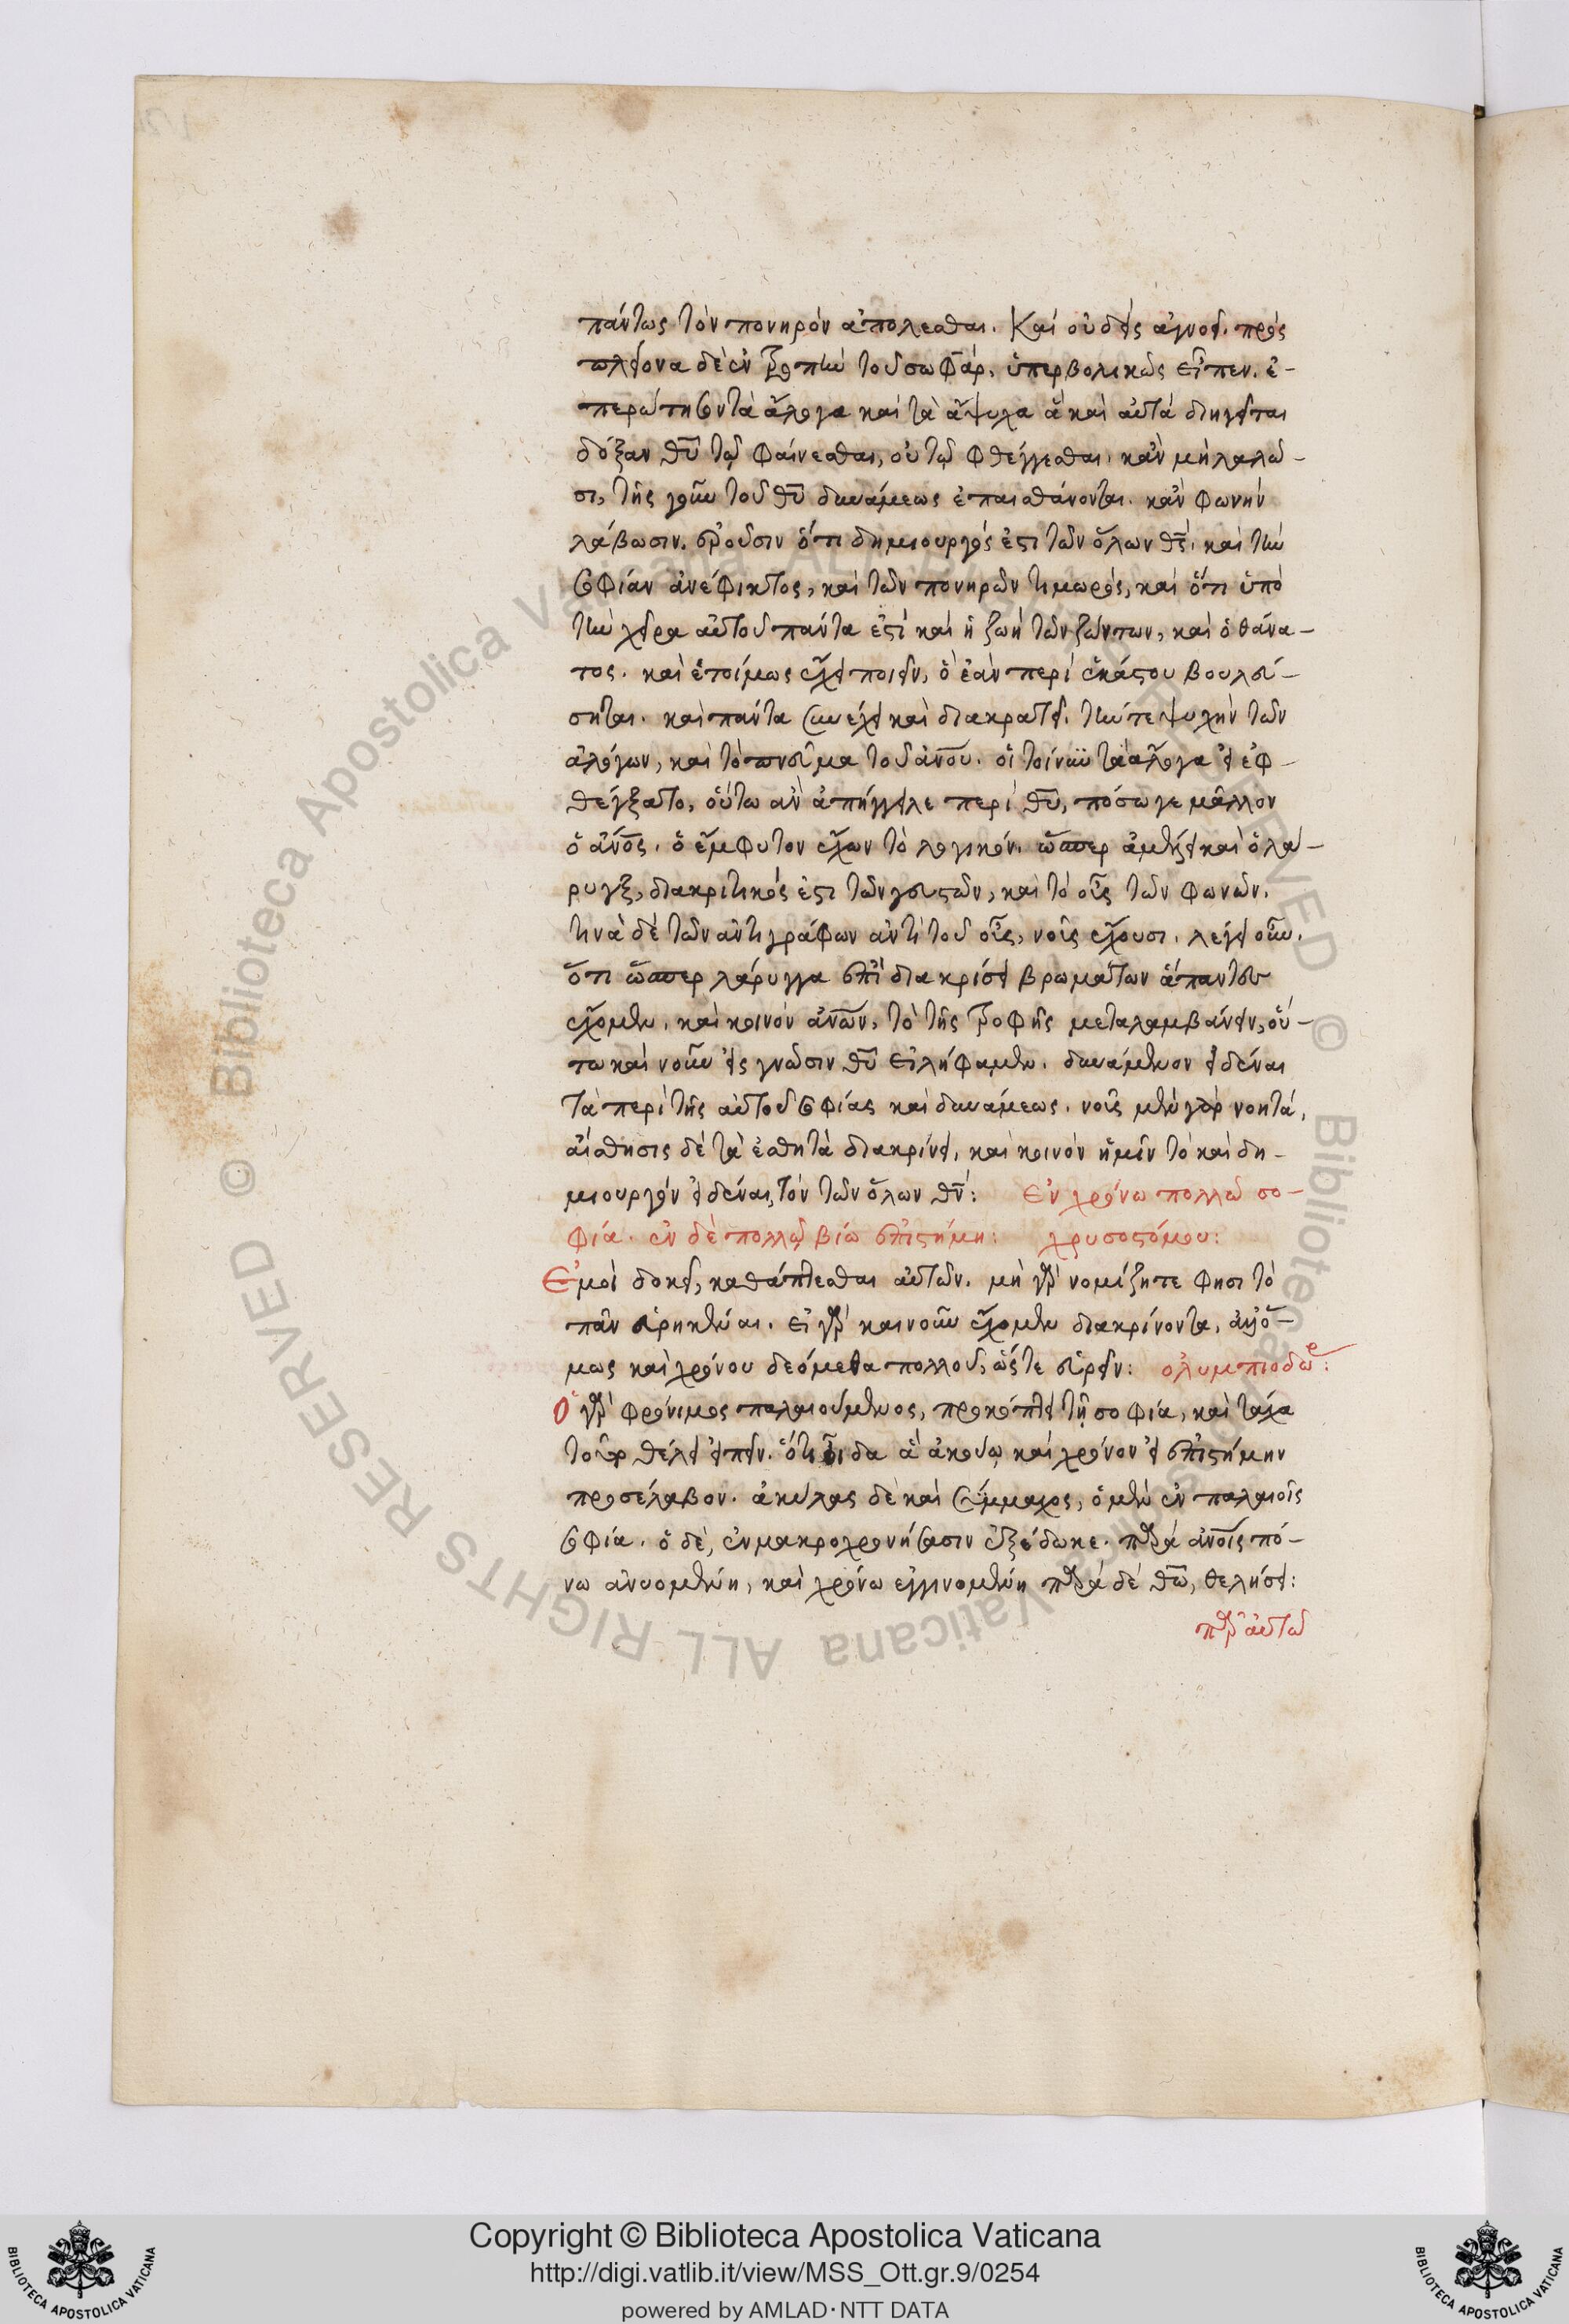 πάντως τὸν πονηρὸν ἀπολεσθαι. Καὶ οὐδεὶς ἀγνοεῖ. πρὸς
πλείονα δὲ ἐντροπὴν τοῦ σωφὰρ, ὑπερβολικῶς εἶπεν. ἐ-
περώτησον τὰ ἄλογα καὶ τὰ ἄψυχα ἃ καὶ αὐτὰ διηγεῖται
δόξαν θῦ τῷ φαίνεσθαι, οὐ τῷ φθέγγεσθαι. κἂν μὴ λαλῶ-
σι, τῆς γοῦν τοῦ θῦ δυνάμεως ἐπαισθάνονται. κἂν φωνὴν
λάβωσιν. ἐροῦσιν ὅτι δημιουργὸς ἐστι τῶν ὅλων θς̅. καὶ τὴν
σοφίαν ἀνέφικτος, καὶ τῶν πονηρῶν τιμωρὸς, καὶ ὅτι ὑπὸ
τὴν χεῖρα αὐτοῦ πάντα ἐστὶ καὶ ἡ ζωὴ τῶν ζώντων, καὶ ὁ θάνα-
τος. καὶ ἑτοίμως ἔχει ποιεῖν, ὃ ἐὰν περὶ ἑκάστου βουλεύ-
σηται. καὶ πάντα συνέχει καὶ διακρατεῖ. τήν τε ψυχὴν τῶν
ἀλόγων, καὶ τὸ πνεῦμα τοῦ ἀνου. εἰ τοίνυν τὰ ἄλογα εἰ ἐφ-
θέγξατο, οὕτω ἂν ἀπήγγειλε περὶ θῦ, πόσω γε μᾶλλον
ὁ ἄνος. ὁ ἔμφυτον ἔχων τὸ λογικόν. ὥσπερ ἀμέλει καὶ ὁ λά-
ρυγξ, διακριτικός ἐστι τῶν γευστῶν, καὶ τὸ οὖς τῶν φωνῶν.
τινὰ δὲ τῶν ἀντιγράφων ἀντὶ τοῦ οὖς, νοῦς ἔχουσι. λέγει οὖν.
ὅτι ὥσπερ λάρυγγα ἐπὶ διακρίσει βρωμάτων ἅπαντες
ἔχομεν, καὶ κοινὸν ἀνων, τὸ τῆς τροφῆς μεταλαμβάνειν, οὕ-
τω καὶ νοῦν εἰς γνῶσιν θῦ εἰλήφαμεν. δυνάμενον εἰδέναι
τὰ περὶ τῆς αὐτοῦ σοφίας καὶ δυνάμεως. νοῦς μὲν γὰρ νοητὰ,
αἴσθησις δὲ τὰ ἐσθητὰ διακρίνει, καὶ κοινὸν ἡμῖν τὸ καὶ δη-
μιουργὸν εἰδέναι, τὸν τῶν ὅλων θν̅: Ἐν χρόνω πολλῶ σο-
φία. ἐν δὲ πολλῷ βίω ἐπιστήμη: χρυσοστόμου:
Ἐμοὶ δοκεῖ, καθάπτεσθαι αὐτῶν. μὴ γὰρ νομίζητε φησι τὸ
πᾶν εὑρηκέναι. εἰ γὰρ καὶ νοῦν ἔχομεν διακρίνοντα, ἀλλ' ὅ-
μως καὶ χρόνου δεόμεθα πολλοῦ, ὥστε εὑρεῖν: ὀλυμπιοδώρ:
Ὁ γὰρ φρόνιμος παλαιούμενος, προκόπτει τῇ σοφία, καὶ τάχα
τοῦτο θέλει εἰπεῖν. ὅτι οἶδα ἃ ἀκούω καὶ χρόνον εἰ ἐπιστήμην
προσέλαβον. ἀκύλας δὲ καὶ σύμμαχος, ὁ μὲν ἐν παλαιοῖς
σοφία. ὁ δὲ, ἐν μακροχρονήσασιν ἐξέδωκε. παρὰ ἀνοις πό-
νω ἀνυομένη, καὶ χρόνω ἐγγινομένη παρὰ δὲ θω̅, θελήσει:
παρ' αὐτῶ
Copyright © Biblioteca Apostolica Vaticana
http://digi.vatlib.it/view/MSS_Ott.gr.9/0254
powered by AMLAD·NTT DATA